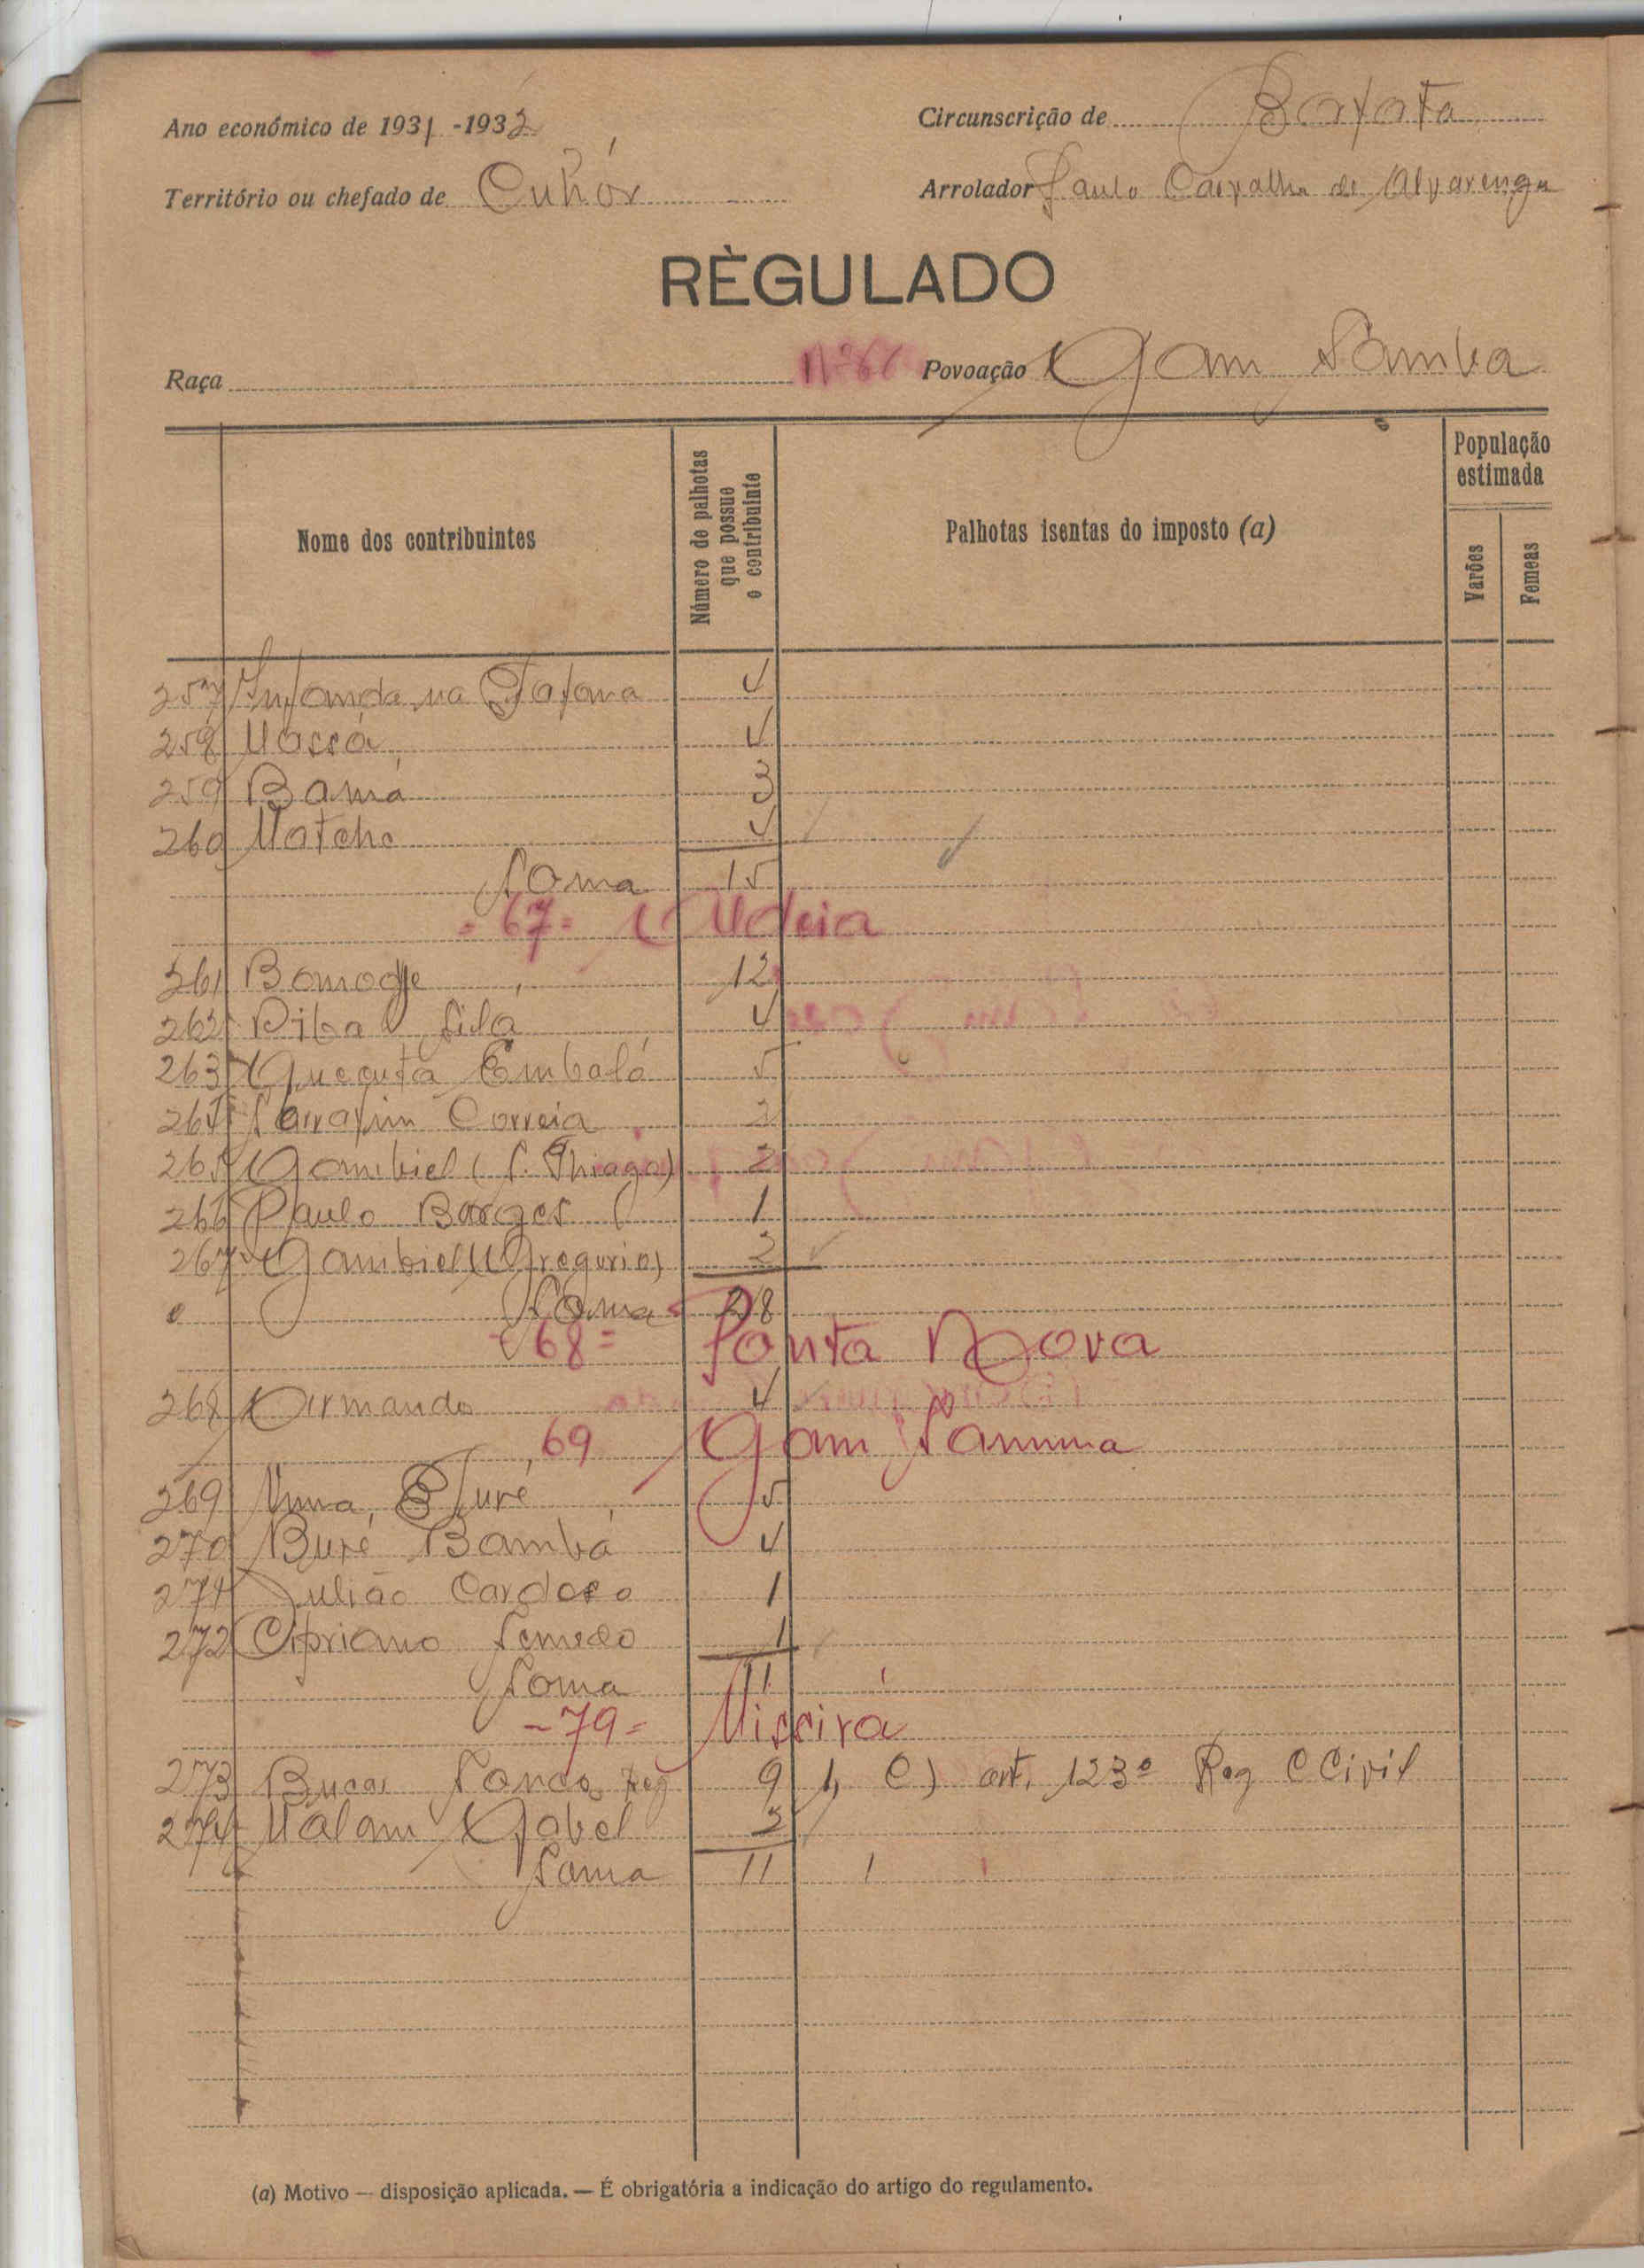 Ano económico de 1931-1932
Circunscrição de Bafatá
Território ou chefado de Cuhór
Arrolador Paulo Carvalho de Alvarenga
RÈGULADO
Raça
Nº 66 Povoação Gam Samba
Nome dos contribuintes
Número de palhotas que possue o contribuinte
Palhotas isentas do imposto (a)
População estimada
Varões
Femeas
257 na 4
258 4
259 Bamá 3
260 4
Soma 15
= 67 = Aldeia
261 12
262 4
263 Embaló 5
264 Correia 2
265 Gambiel (S. Thiago) 2
266 Paulo Borges 1
267 Gambiel (Gregorio) 2
Soma 28
= 68 = Ponta Nova
268 Armando 4
69 Gam Samma
269 Turé 5
270 Buré Bambá 4
271 Julião Cardoso 1
272 Cipriano Semedo 1
Soma 11
- 79 = Missirá
273 9 1, C) art. 123º Reg C Civil
274 Malam 2
Soma 11 1
(a) Motivo — disposição aplicada. — É obrigatória a indicação do artigo do regulamento.